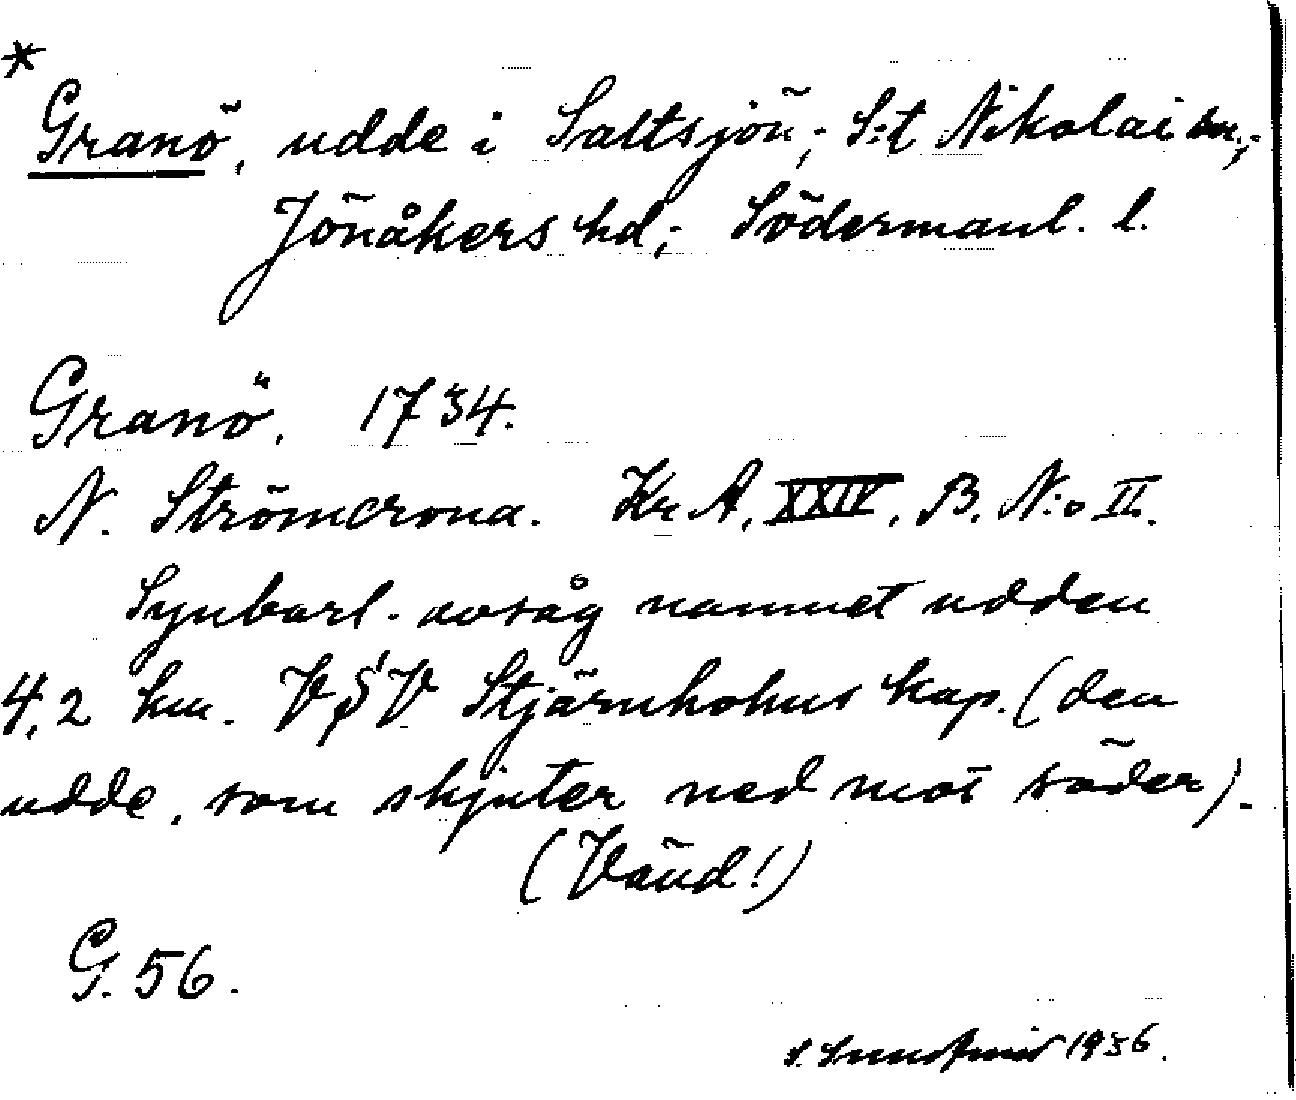 *
Granö, udde i Saltsjön; S:t Nikolai sn.;
Jönåkers hd; Södermanl. l.
Granö. 1734.
N. Strömcrona. Kr. A. XXIV. B. N:o II.
Synbarl. avsåg namnet udden
4,2 km. VSV Stjärnholms kap. (den
udde, som skjuter ned mot söder).
(Vänd!)
G. 56.
S. 1936.